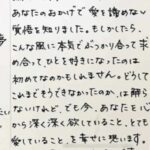 あなたのおかげで愛を識めない
覚悟を知りました。もしかしたら、
こんな風に本気でぶつかり合って求
め合って、ひとを好きになったのは
初めてなのかもしれません。どうして
これまでそうできなかったのか、は解ら
ないけれど、でも今、あなたを心
から深く深く欲していること、とても
愛していること、を幸せに思います。